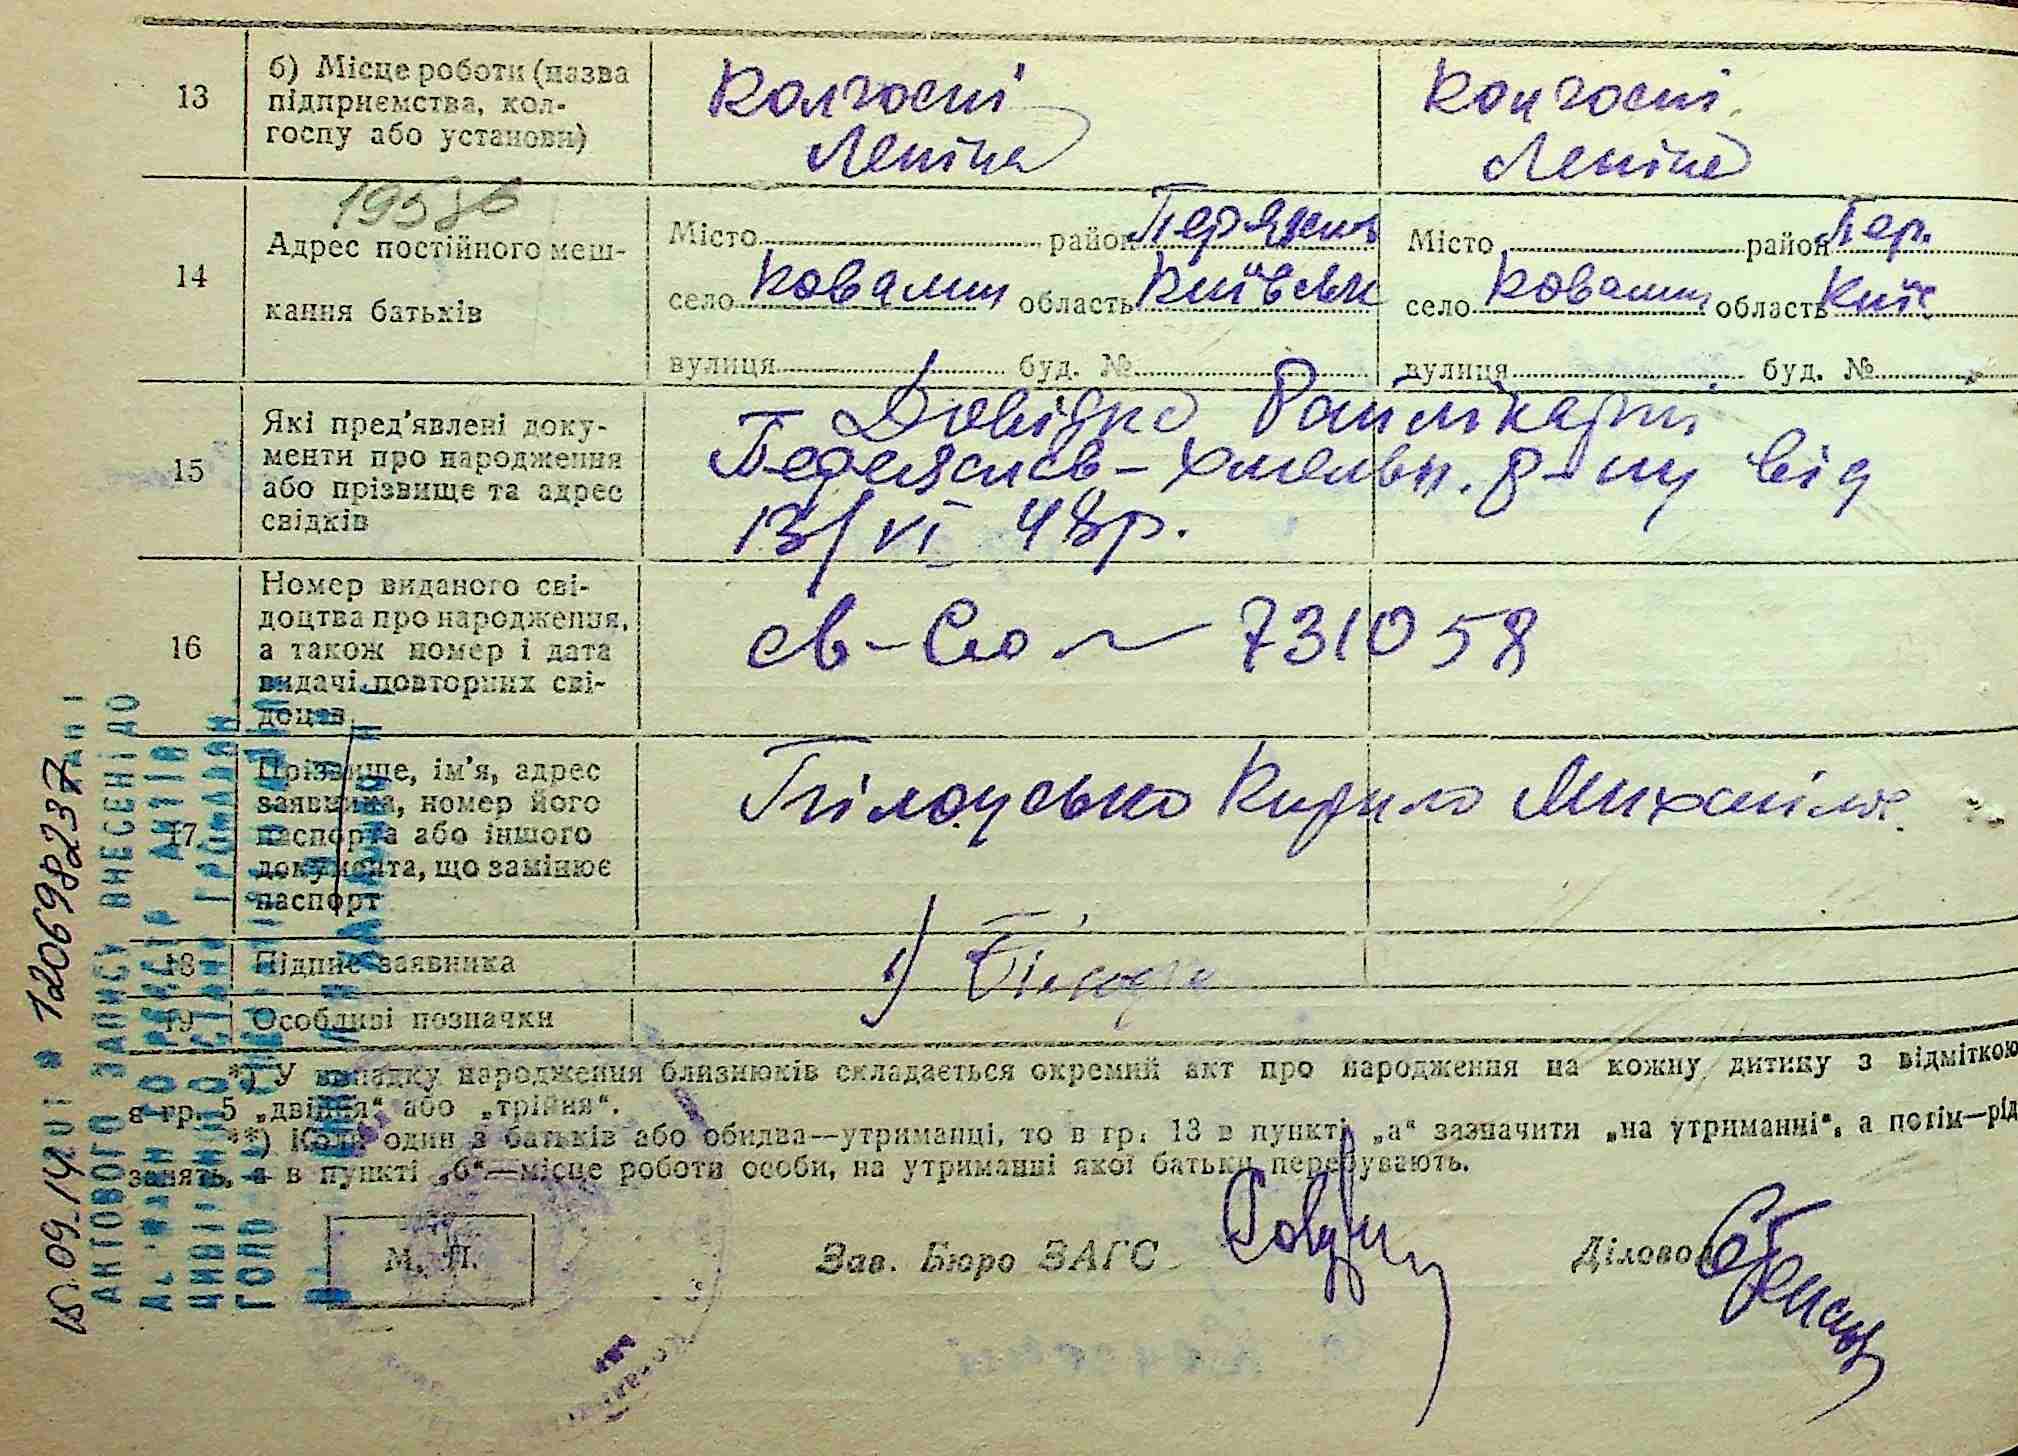 13
б) Місце роботи (назва
підприємства, кол-
госпу або установи)
Колгоспі
Леніна
Колгоспі
Леніна
14
Адрес постійного меш-
кання батьків
Місто район Переясл
село Ковалин область Київськ
вулиця буд. №
Місто район Пер.
село Ковалин область Київ
вулиця буд. №
15
Які пред'явлені доку-
менти про народження
або прізвище та адрес
свідків
Довідка Райлікарні
Переяслав-Хмельн. р-ну від
13/VI 48р.
16
Номер виданого сві-
доцтва про народження,
а також номер і дата
видачі повторних сві-
доцтв
св-во 731058
17
Прізвище, ім'я, адрес
заявника, номер його
паспорта або іншого
документа, що замінює
паспорт
Кирило Михайлов.
18
Підпис заявника
1)
19
Особливі позначки
*) У випадку народження близнюків складається окремий акт про народження на кожну дитину з відміткою
в гр. 5 „двійня“ або „трійня“.
**) Коли один з батьків або обидва—утриманці, то в гр. 13 в пункті „а“ зазначити „на утриманні“, а потім—рід
занять, а в пункті „б“—місце роботи особи, на утриманні якої батьки перебувають.
М. П.
Зав. Бюро ЗАГС
Діловод
АКТОВОГО ЗАПИСУ ВНЕСЕНІ ДО